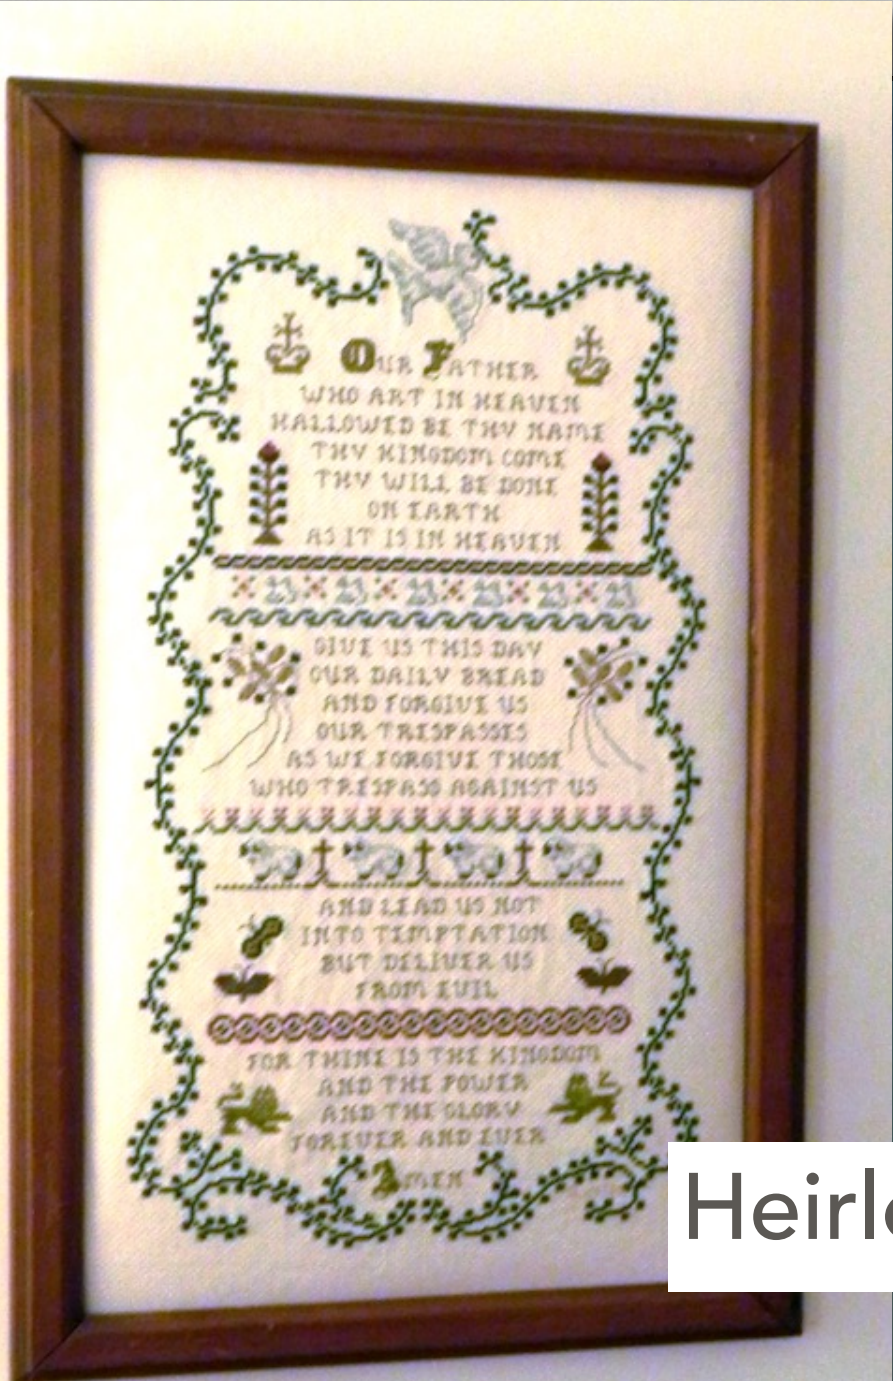 OUR FATHER
WHO ART IN HEAVEN
HALLOWED BE THY NAME
THY KINGDOM COME
THY WILL BE DONE
ON EARTH
AS IT IS IN HEAVEN
GIVE US THIS DAY
OUR DAILY BREAD
AND FORGIVE US
OUR TRESPASSES
AS WE FORGIVE THOSE
WHO TRESPASS AGAINST US
AND LEAD US NOT
INTO TEMPTATION
BUT DELIVER US
FROM EVIL
FOR THINE IS THE KINGDOM
AND THE POWER
AND THE GLORY
FOREVER AND EVER
AMEN